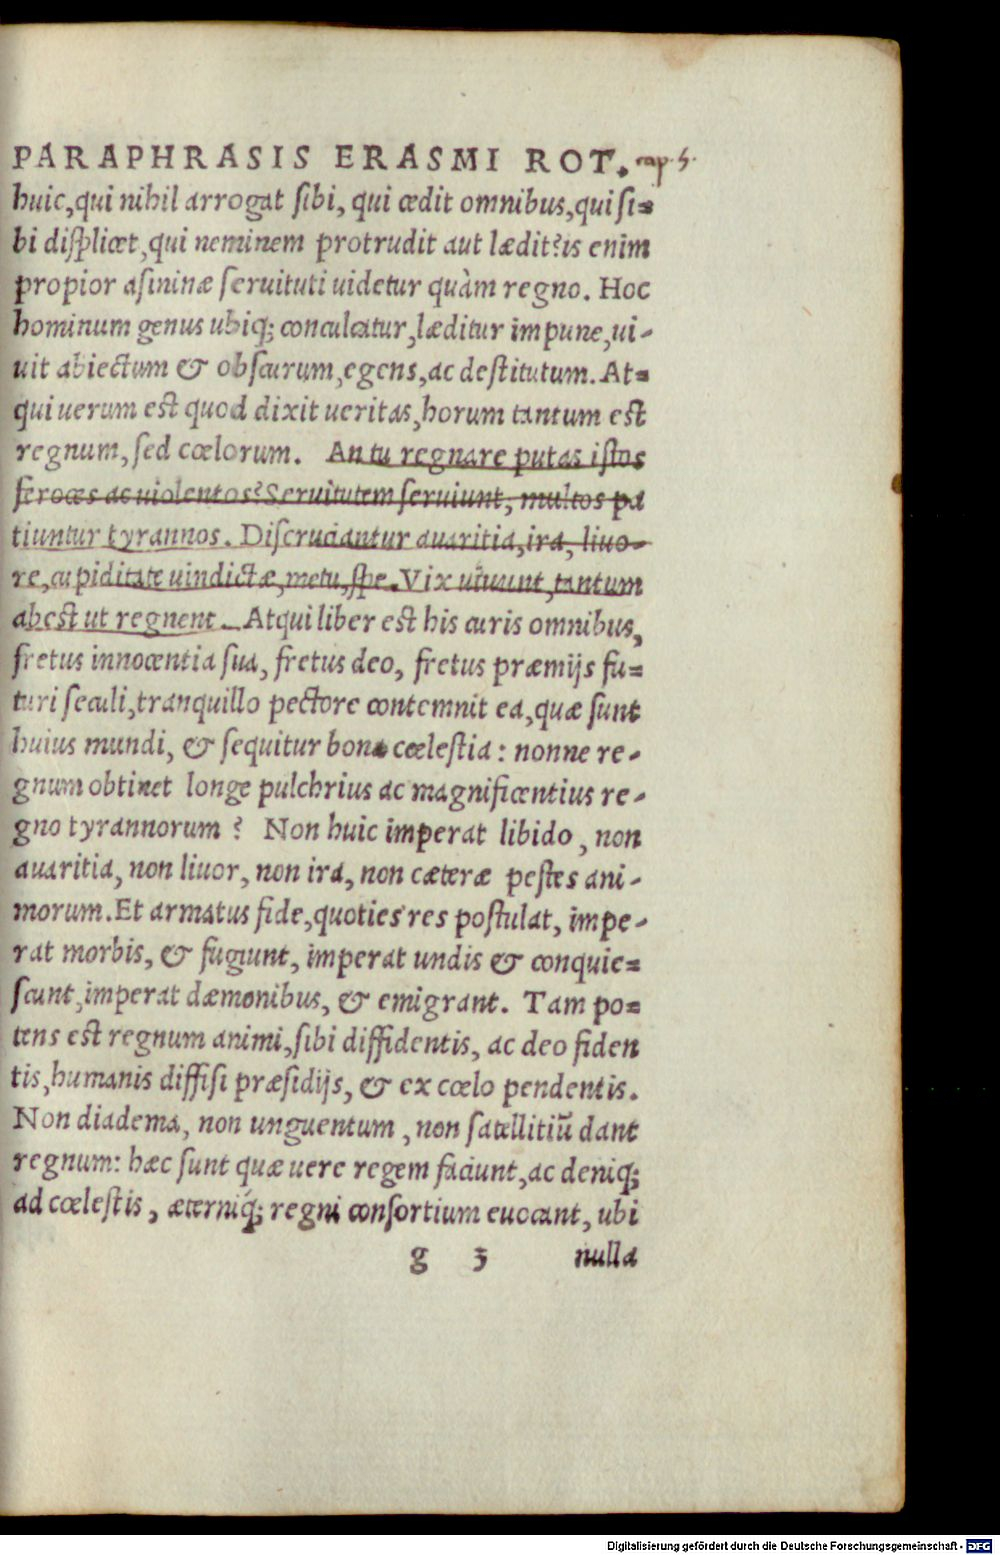 PARAPHRASIS ERASMI ROT. cap. 5.
huic, qui nihil arrogat sibi, qui cedit omnibus, qui si=
bi displicet, qui neminem protrudit aut lædit? is enim
propior asininæ seruituti uidetur quàm regno. Hoc
hominum genus ubiq; conculcatur, læditur impune, ui-
uit abiectum & obscurum, egens, ac destitutum. At=
qui uerum est quod dixit ueritas, horum tantum est
regnum, sed cœlorum. An tu regnare putas istos
feroces ac uiolentos? Seruitutem seruiunt, multos pa
tiuntur tyrannos. Discruciantur auaritia, ira, liuo-
re, cupiditate uindictæ, metu, spe. Vix uiuunt, tantum
abest ut regnent. Atqui liber est his curis omnibus,
fretus innocentia sua, fretus deo, fretus præmijs fu=
turi seculi, tranquillo pectore contemnit ea, quæ sunt
huius mundi, & sequitur bona cœlestia: nonne re-
gnum obtinet longe pulchrius ac magnificentius re-
gno tyrannorum? Non huic imperat libido, non
auaritia, non liuor, non ira, non cæteræ pestes ani-
morum. Et armatus fide, quoties res postulat, impe-
rat morbis, & fugiunt, imperat undis & conquie=
scunt, imperat dæmonibus, & emigrant. Tam po=
tens est regnum animi, sibi diffidentis, ac deo fiden
tis, humanis diffisi præsidijs, & ex cœlo pendentis.
Non diadema, non unguentum, non satellitiũ dant
regnum: hæc sunt quæ uere regem faciunt, ac deniq;
ad cœlestis, æterniq́; regni consortium euocant, ubi
g 3 nulla
Digitalisierung gefördert durch die Deutsche Forschungsgemeinschaft - DFG